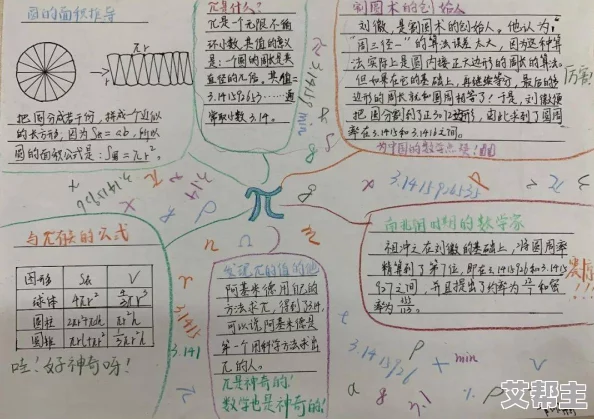 圆的面积推导
πr
r
把圆分成若干份，拼成一个近似
的长方形，因为S长=ab，所以
圆的面积公式是：S圆=πr²。
π是什么？
π是一个无限不循
环小数，其值的含义
是：一个圆的周长是其
直径的几倍，其值=
3.141592653……通
常取小数3.14。
割圆术的创始人
刘徽，是割圆术的创始人。他认为，
“周三径一”的算法误差太大，因为这种算
法实际上是圆内接正六边形的周长的算法。
但如果在它的基础上，再继续等分，最后的多
边形的周长就和圆周相等了！于是，刘徽便
把圆分割到了正3072边形，因此求到了圆周
率在3.14和3.1416之间。
厉害！
为中国的数学点赞！
π
3.1415926535
与π有关的公式
图形 S表 V
球体 4πr² 4/3πr³
圆柱 2πr²+πdh πr²h
圆锥 πr²+πrl 1/3πr²h
哇！好神奇呀！
3.1415
3.141
发现π的值的他
阿基米德用他的
方法求π，得到了3.14，
可以说，阿基米德是
第一个用科学方法求出
π的人。
π是神奇的！
数学也是神奇的！
南北朝时期的数学家
祖冲之在刘徽的基础上，将圆周率
精算到了第7位，即在3.1415926和3.1415
927之间，并且提出了约率为22/7和密
率为355/113。
3.1415926
min
V
艾帮主